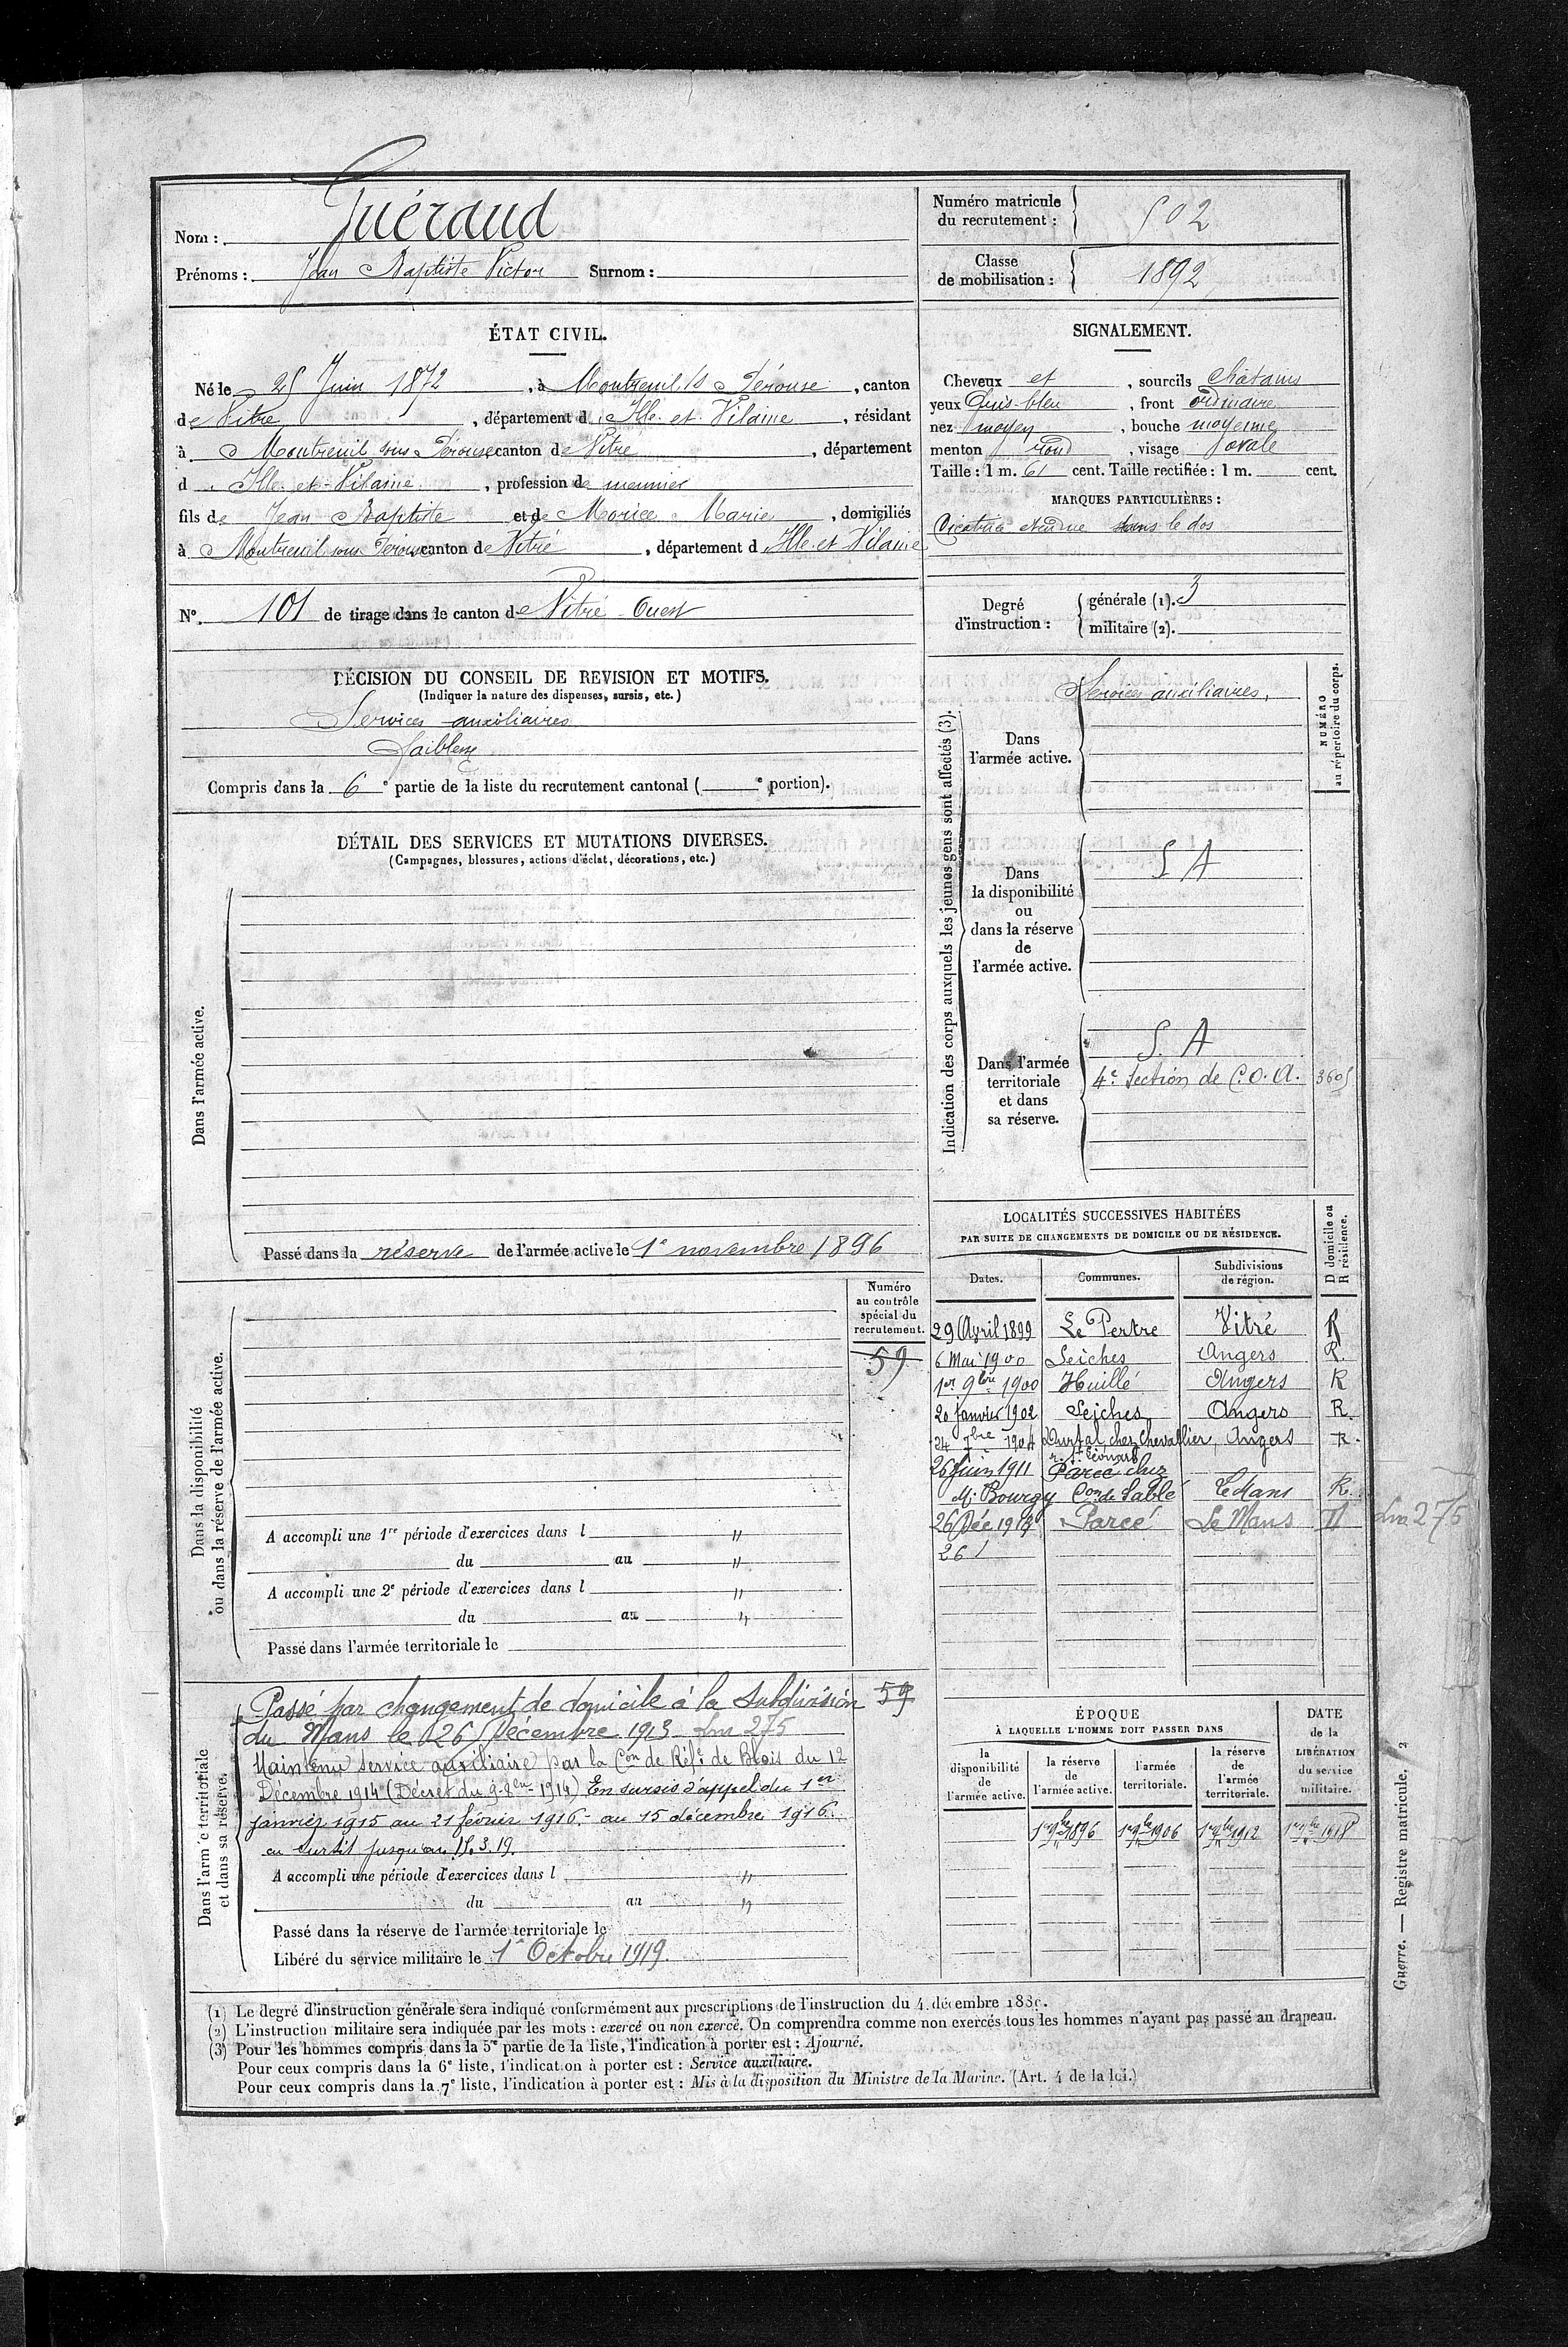 Nom : Guéraud
Prénoms : Jean Baptiste Victor Surnom :
Numéro matricule du recrutement : 502
Classe de mobilisation : 1892
ÉTAT CIVIL.
Né le 25 Juin 1872, à Montreuil s/s Pérouse, canton
de Vitré, département d Ille et Vilaine, résidant
à Montreuil sous Pérouse canton de Vitré, département
d Ille-et-Vilaine, profession de meunier
fils de Jean Baptiste et de Morice Marie, domiciliés
à Montreuil sous Pérouse canton de Vitré, département d Ille et Vilaine
SIGNALEMENT.
Cheveux et, sourcils châtains
yeux gris-bleu, front ordinaire
nez moyen, bouche moyenne
menton rond, visage ovale
Taille : 1 m. 61 cent. Taille rectifiée : 1 m. cent.
MARQUES PARTICULIÈRES :
Cicatrice étendue dans le dos
N° 101 de tirage dans le canton de Vitré Ouest
Degré d'instruction : générale (1). 3
militaire (2).
DÉCISION DU CONSEIL DE REVISION ET MOTIFS.
(Indiquer la nature des dispenses, sursis, etc.)
Services auxiliaires
Faiblesse
Compris dans la 6e partie de la liste du recrutement cantonal ( e portion).
DÉTAIL DES SERVICES ET MUTATIONS DIVERSES.
(Campagnes, blessures, actions d'éclat, décorations, etc.)
Dans l'armée active.
Passé dans la réserve de l'armée active le 1e novembre 1896
Indication des corps auxquels les jeunes gens sont affectés (3).
NUMÉRO au répertoire du corps.
Dans l'armée active.
Services auxiliaires.
Dans la disponibilité ou dans la réserve de l'armée active.
S A
Dans l'armée territoriale et dans sa réserve.
S. A
4e Section de C.O.A. 3605
LOCALITÉS SUCCESSIVES HABITÉES
PAR SUITE DE CHANGEMENTS DE DOMICILE OU DE RÉSIDENCE.
D domicile ou R résidence.
Dates. Communes. Subdivisions de région.
29 Avril 1899 Le Pertre Vitré R
6 Mai 1900 Seiches Angers R.
1er 9bre 1900 Huillé Angers R
20 janvier 1902 Seiches Angers R.
24 7bre 1904 Durtal chez Chevallier, Angers R.
r. St Léonard
26 Juin 1911 Parcé chez
M. Bourgy Con de Sablé Le Mans R.
26 Déc 1913 Parcé Le Mans D 275
26
Dans la disponibilité ou dans la réserve de l'armée active.
Numéro au contrôle spécial du recrutement.
59
A accompli une 1re période d'exercices dans l "
du au "
A accompli une 2e période d'exercices dans l "
du au "
Passé dans l'armée territoriale le
Dans l'armée territoriale et dans sa réserve.
59
Passé par changement de domicile à la Subdivision
du Mans le 26 Décembre 1913 275
Maintenu service auxiliaire par la Con de Réf. de Blois du 12
Décembre 1914 (Décret du 9-8bre-1914) En sursis d'appel du 1er
janvier 1915 au 21 février 1916 - au 15 décembre 1916.
en sursis jusqu'au 15.3.19.
A accompli une période d'exercices dans l "
du au "
Passé dans la réserve de l'armée territoriale le
Libéré du service militaire le 1er Octobre 1919.
ÉPOQUE
À LAQUELLE L'HOMME DOIT PASSER DANS
DATE de la LIBÉRATION du service militaire.
la disponibilité de l'armée active. la réserve de l'armée active. l'armée territoriale. la réserve de l'armée territoriale.
1er 9bre 1896 1er 9bre 1906 1er 9bre 1912 1er 9bre 1918
Guerre. — Registre matricule. 2
(1) Le degré d'instruction générale sera indiqué conformément aux prescriptions de l'instruction du 4 décembre
(2) L'instruction militaire sera indiquée par les mots : exercé ou non exercé. On comprendra comme non exercés tous les hommes n'ayant pas passé au drapeau.
(3) Pour les hommes compris dans la 5e partie de la liste, l'indication à porter est : Ajourné.
Pour ceux compris dans la 6e liste, l'indication à porter est : Service auxiliaire.
Pour ceux compris dans la 7e liste, l'indication à porter est : Mis à la disposition du Ministre de la Marine. (Art. 4 de la loi.)